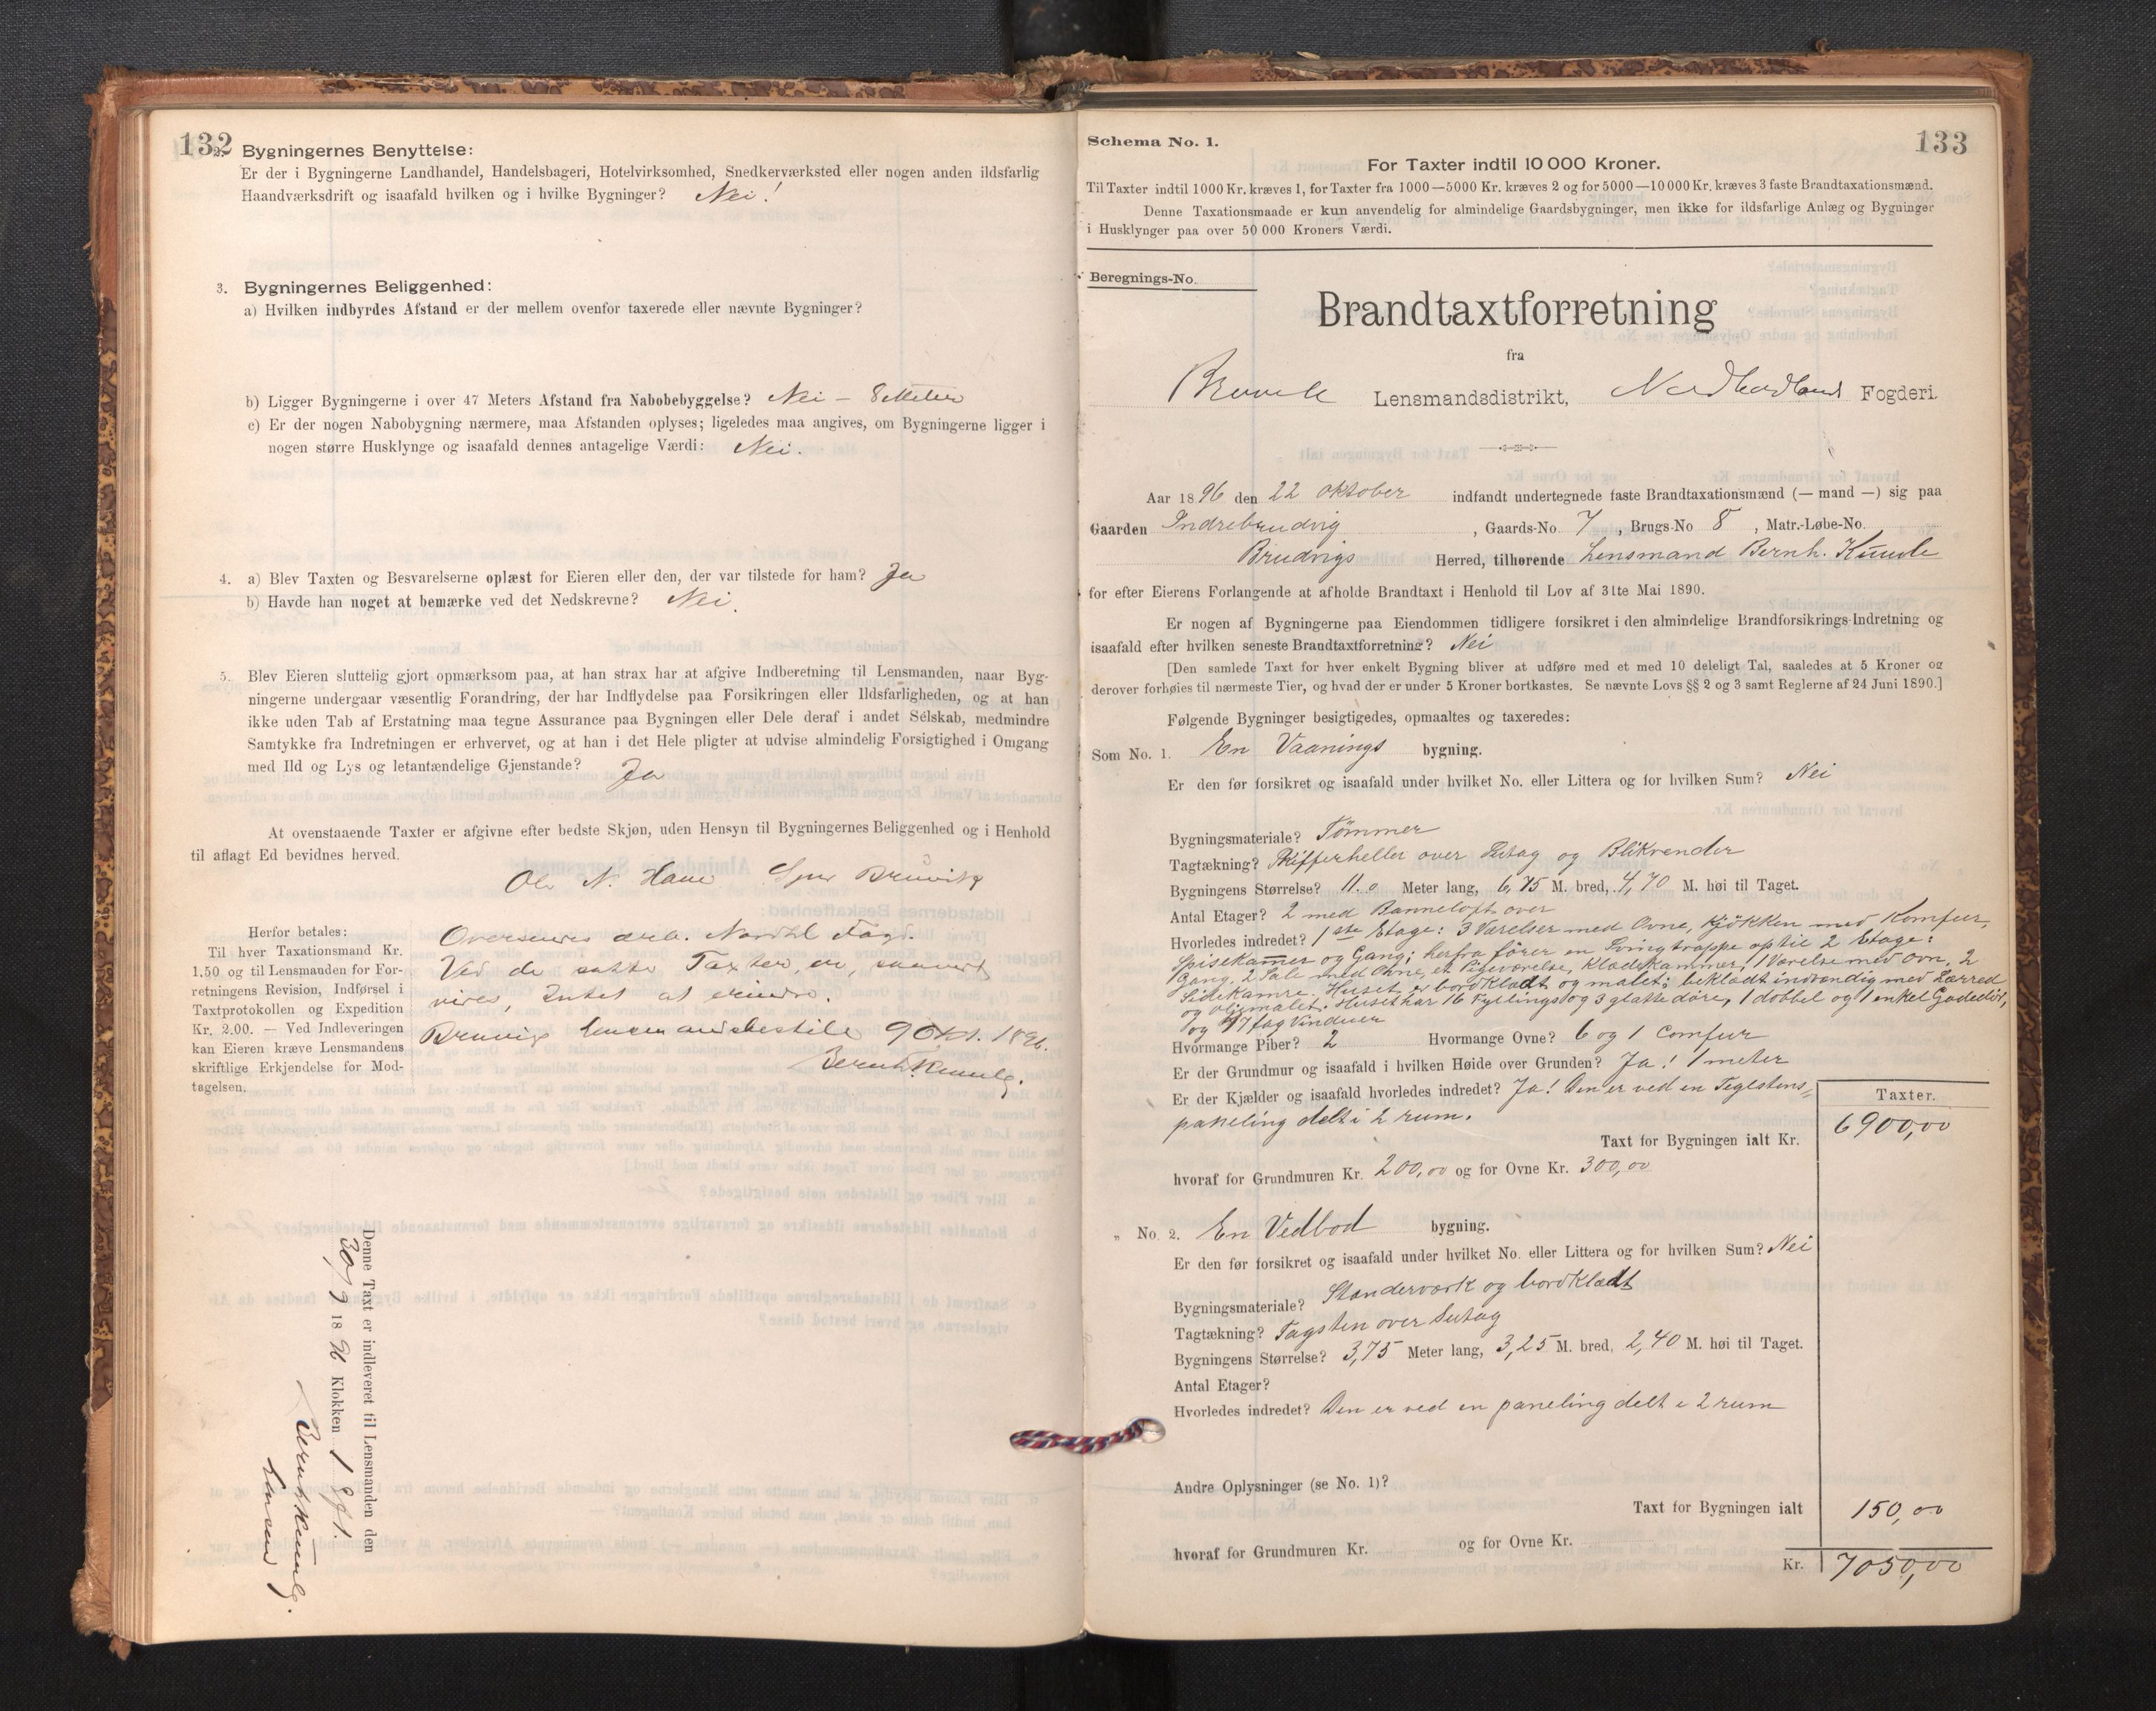 132
2. Bygningernes Benyttelse:
Er der i Bygningerne Landhandel, Handelsbageri, Hotelvirksomhed, Snedkerværksted eller nogen anden ildsfarlig
Haandværksdrift og isaafald hvilken og i hvilke Bygninger? Nei!
3. Bygningernes Beliggenhed:
a) Hvilken indbyrdes Afstand er der mellem ovenfor taxerede eller nævnte Bygninger?
b) Ligger Bygningerne i over 47 Meters Afstand fra Nabobebyggelse? Nei – 8 Meter
c) Er der nogen Nabobygning nærmere, maa Afstanden oplyses; ligeledes maa angives, om Bygningerne ligger i
nogen større Husklynge og isaafald dennes antagelige Værdi: Nei.
4. a) Blev Taxten og Besvarelserne oplæst for Eieren eller den, der var tilstede for ham? Ja
b) Havde han noget at bemærke ved det Nedskrevne? Nei.
5. Blev Eieren sluttelig gjort opmærksom paa, at han strax har at afgive Indberetning til Lensmanden, naar Byg-
ningerne undergaar væsentlig Forandring, der har Indflydelse paa Forsikringen eller Ildsfarligheden, og at han
ikke uden Tab af Erstatning maa tegne Assurance paa Bygningen eller Dele deraf i andet Selskab, medmindre
Samtykke fra Indretningen er erhvervet, og at han i det Hele pligter at udvise almindelig Forsigtighed i Omgang
med Ild og Lys og letantændelige Gjenstande? Ja
At ovenstaaende Taxter er afgivne efter bedste Skjøn, uden Hensyn til Bygningernes Beliggenhed og i Henhold
til aflagt Ed bevidnes herved.
Ole N. Hane Bruvik
Herfor betales:
Til hver Taxationsmand Kr.
1,50 og til Lensmanden for For-
retningens Revision, Indførsel i
Taxtprotokollen og Expedition
Kr. 2.00. — Ved Indleveringen
kan Eieren kræve Lensmandens
skriftlige Erkjendelse for Mod-
tagelsen.
Oversendes
Ved de satte Taxter, er, saavidt
vides, Intet at erindre.
Bruvigs Lensmandsbestil 9 Okt. 1896.
Bernh. Kunle.
Denne Taxt er indleveret til Lensmanden den
30/9 1896 Klokken 1 Eft.
Bernh. Kunle.
Lensm
133
Schema No. 1.
For Taxter indtil 10 000 Kroner.
Til Taxter indtil 1000 Kr. kræves 1, for Taxter fra 1000—5000 Kr. kræves 2 og for 5000—10000 Kr. kræves 3 faste Brandtaxationsmænd.
Denne Taxationsmaade er kun anvendelig for almindelige Gaardsbygninger, men ikke for ildsfarlige Anlæg og Bygninger
i Husklynger paa over 50 000 Kroners Værdi.
Beregnings-No.
Brandtaxtforretning
fra
Bruvik Lensmandsdistrikt, Nordhordland Fogderi.
Aar 1896 den 22 oktober indfandt undertegnede faste Brandtaxationsmænd (— mand —) sig paa
Gaarden Indrebrudvig, Gaards-No 7, Brugs-No 8, Matr.-Løbe-No.
Brudvigs Herred, tilhørende Lensmand Bernh. Kunle
for efter Eierens Forlangende at afholde Brandtaxt i Henhold til Lov af 31te Mai 1890.
Er nogen af Bygningerne paa Eiendommen tidligere forsikret i den almindelige Brandforsikrings-Indretning og
isaafald efter hvilken seneste Brandtaxtforretning? Nei
[Den samlede Taxt for hver enkelt Bygning bliver at udføre med et med 10 deleligt Tal, saaledes at 5 Kroner og
derover forhøies til nærmeste Tier, og hvad der er under 5 Kroner bortkastes. Se nævnte Lovs §§ 2 og 3 samt Reglerne af 24 Juni 1890.]
Følgende Bygninger besigtigedes, opmaaltes og taxeredes:
Som No. 1. En Vaanings bygning.
Er den før forsikret og isaafald under hvilket No. eller Littera og for hvilken Sum? Nei
Bygningsmateriale? Tömmer
Tagtækning? Skifferheller over Sutag og Blikrender
Bygningens Størrelse? 11.0 Meter lang, 6,75 M. bred, 4,70 M. høi til Taget.
Antal Etager? 2 med Banneloft over
Hvorledes indredet? 1ste Etage: 3 Værelser med Ovne, Kjökken med Komfur,
Spisekammer og Gang; herfra förer en Svingtrappe op til 2 Etage:
Gang, 2 Sale med Ovne, et Pigeværelse, Klædekammer, 1 Værelse med Ovn, 2
Sidekamre. Huset er bordklædt og malet; beklædt indvendig med Lærred
og oljemalet. Huset har 16 Fyllings og 3 glatte döre, 1 dobbel og 1 enkel Gadedör,
og 17 fag Vinduer
Hvormange Piber? 2 Hvormange Ovne? 6 og 1 Comfur
Er der Grundmur og isaafald i hvilken Høide over Grunden? Ja! 1 meter
Er der Kjælder og isaafald hvorledes indredet? Ja! Den er ved en Teglstens-
paneling delt i 2 rum.
Taxter.
Taxt for Bygningen ialt Kr. 6900,00
hvoraf for Grundmuren Kr. 200,00 og for Ovne Kr. 300,00
„ No. 2. En Vedbod bygning.
Er den før forsikret og isaafald under hvilket No. eller Littera og for hvilken Sum? Nei
Bygningsmateriale? Standerværk og bordklædt
Tagtækning? Tagsten over Sutag
Bygningens Størrelse? 3,75 Meter lang, 3,25 M. bred, 2,40 M. høi til Taget.
Antal Etager?
Hvorledes indredet? Den er ved en paneling delt i 2 rum
Andre Oplysninger (se No. 1)?
Taxt for Bygningen ialt 150,00
hvoraf for Grundmuren Kr. og for Ovne Kr.
Kr. 7050,00